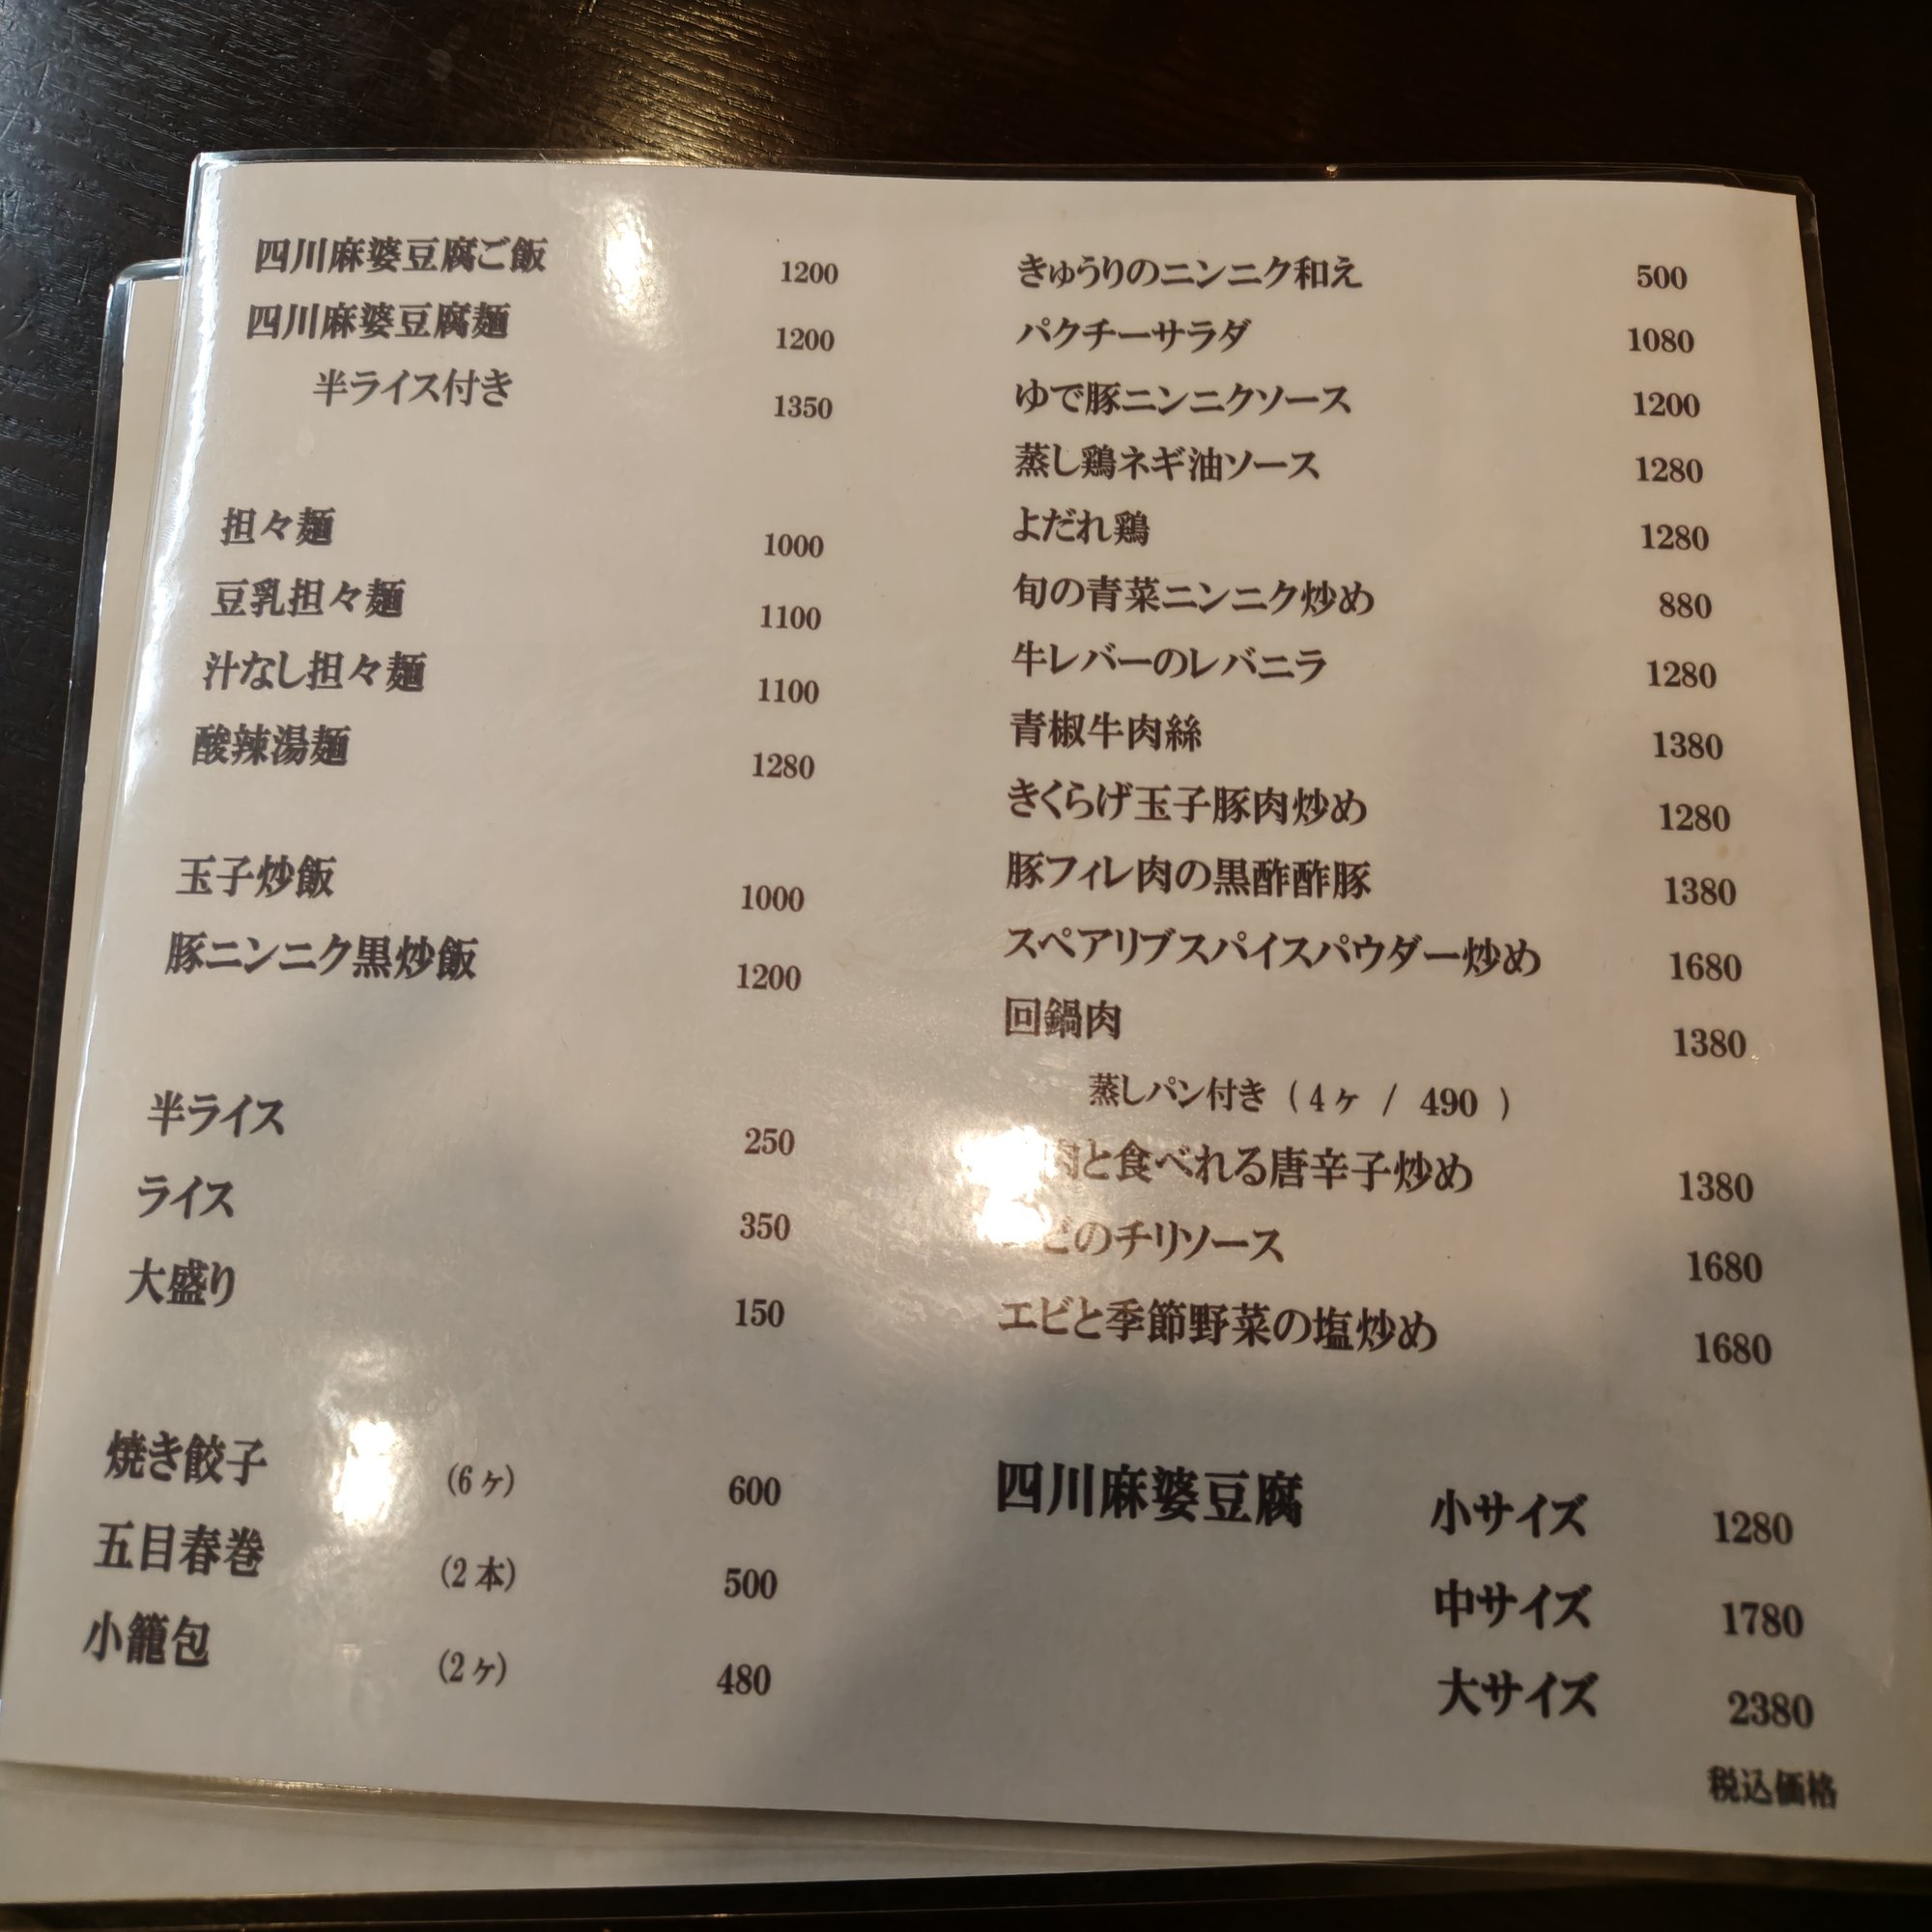 四川麻婆豆腐ご飯 1200
四川麻婆豆腐麺 1200
半ライス付き 1350
担々麺 1000
豆乳担々麺 1100
汁なし担々麺 1100
酸辣湯麺 1280
玉子炒飯 1000
豚ニンニク黒炒飯 1200
半ライス 250
ライス 350
大盛り 150
焼き餃子 (6ヶ) 600
五目春巻 (2本) 500
小籠包 (2ヶ) 480
きゅうりのニンニク和え 500
パクチーサラダ 1080
ゆで豚ニンニクソース 1200
蒸し鶏ネギ油ソース 1280
よだれ鶏 1280
旬の青菜ニンニク炒め 880
牛レバーのレバニラ 1280
青椒牛肉絲 1380
きくらげ玉子豚肉炒め 1280
豚フィレ肉の黒酢酢豚 1380
スペアリブスパイスパウダー炒め 1680
回鍋肉 1380
蒸しパン付き ( 4ヶ / 490 )
肉と食べれる唐辛子炒め 1380
ビのチリソース 1680
エビと季節野菜の塩炒め 1680
四川麻婆豆腐 小サイズ 1280
中サイズ 1780
大サイズ 2380
税込価格